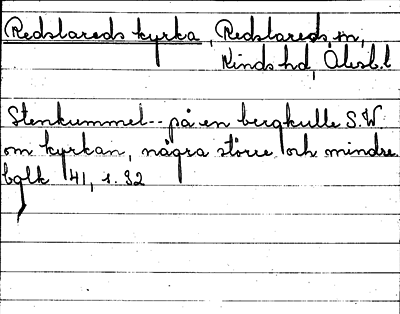 Redslareds kyrka, Redslareds sn,
Kinds hd, Älvsb.l
Stenkummel-- på en bergkulle S.W.
om kyrkan, några större och mindre.
balk 41, s. 32